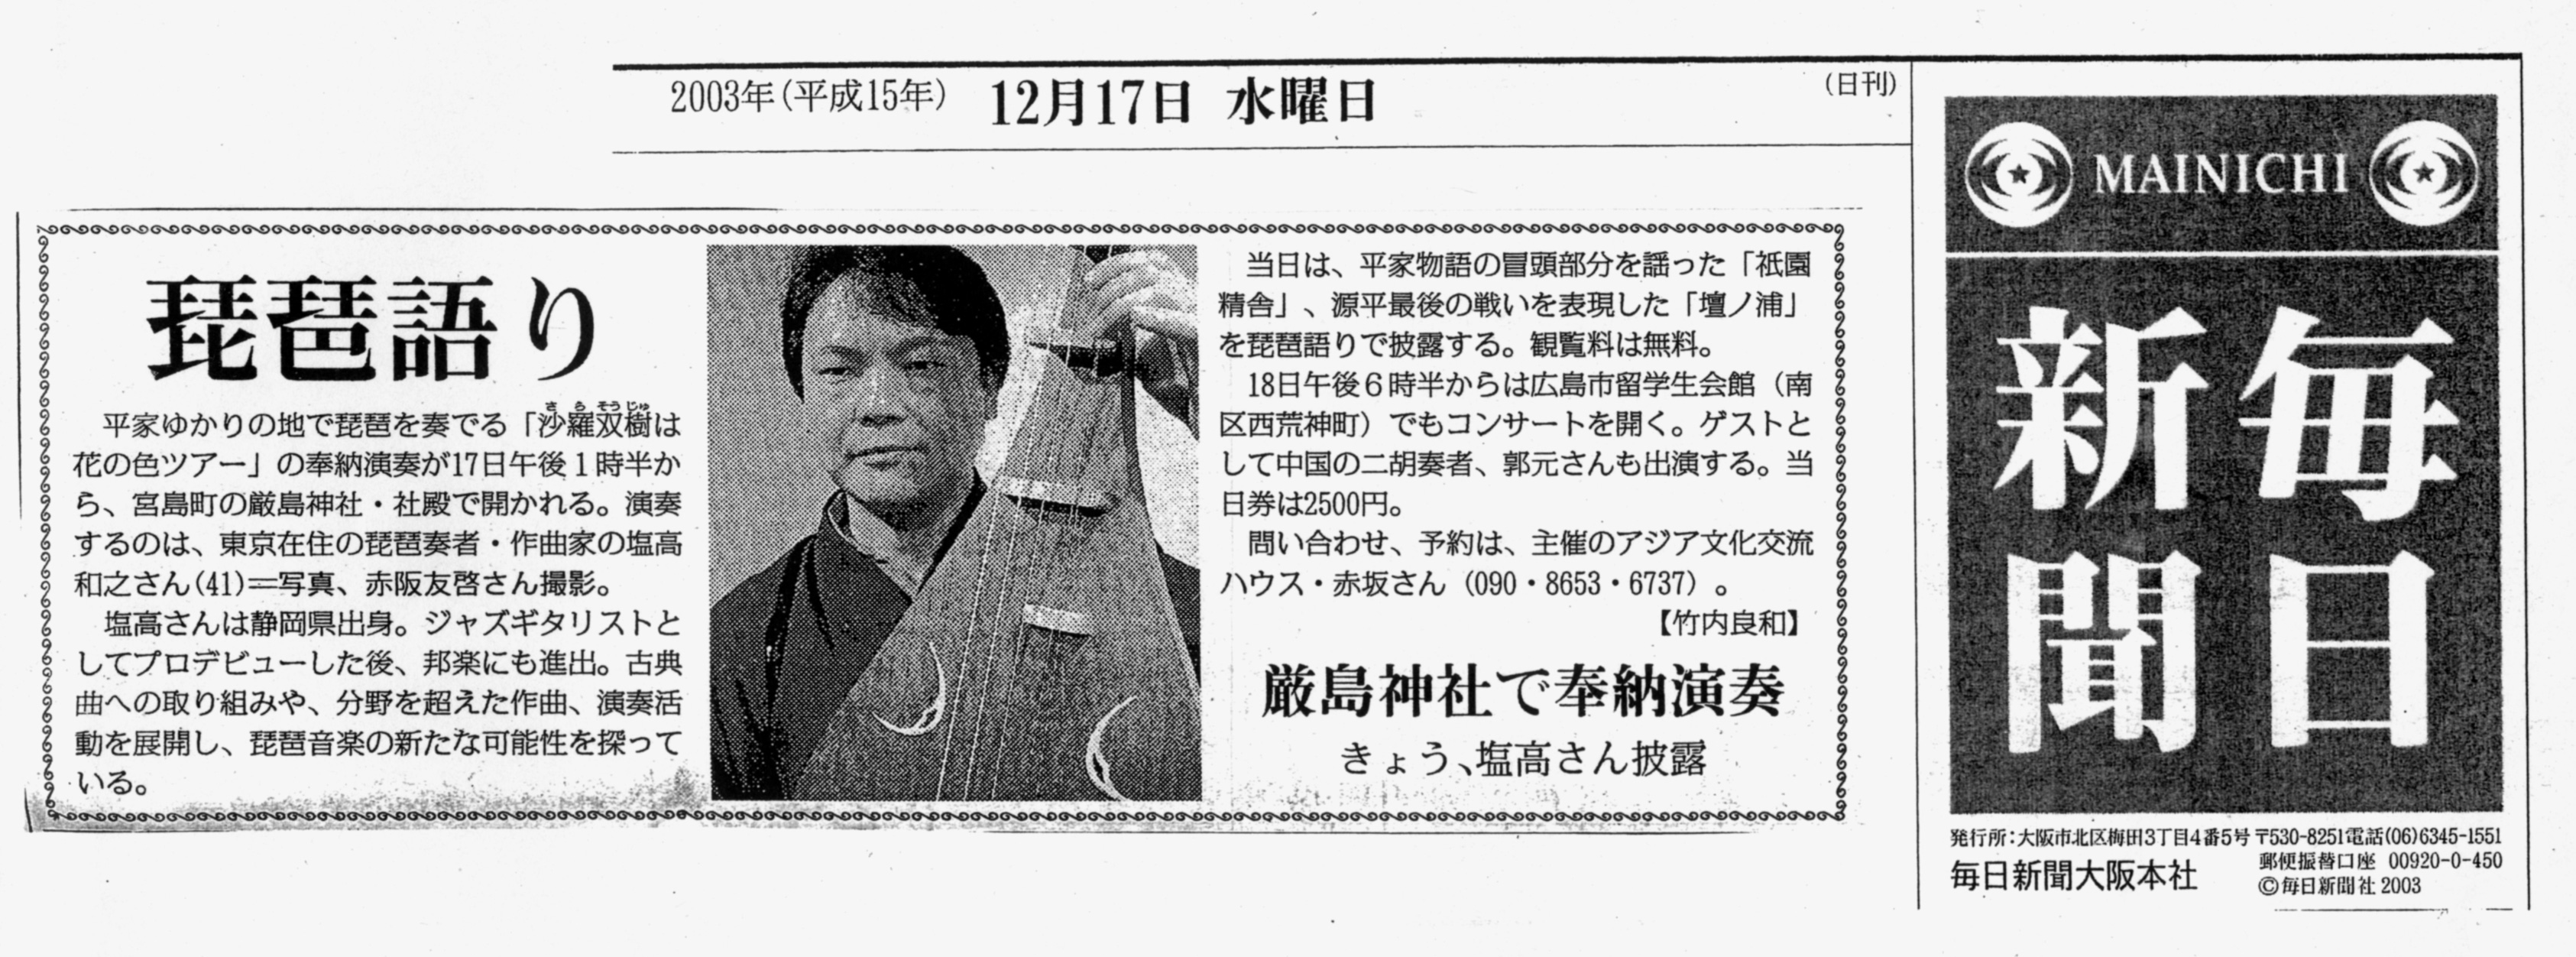 2003年(平成15年) 12月17日 水曜日 (日刊)
MAINICHI
毎日
新聞
発行所:大阪市北区梅田3丁目4番5号 〒530-8251電話(06)6345-1551
郵便振替口座 00920-0-450
毎日新聞大阪本社
©毎日新聞社 2003
琵琶語り
さらそうじゅ
平家ゆかりの地で琵琶を奏でる「沙羅双樹は
花の色ツアー」の奉納演奏が17日午後1時半か
ら、宮島町の厳島神社・社殿で開かれる。演奏
するのは、東京在住の琵琶奏者・作曲家の塩高
和之さん(41)＝写真、赤阪友啓さん撮影。
塩高さんは静岡県出身。ジャズギタリストと
してプロデビューした後、邦楽にも進出。古典
曲への取り組みや、分野を超えた作曲、演奏活
動を展開し、琵琶音楽の新たな可能性を探って
いる。
当日は、平家物語の冒頭部分を謡った「祇園
精舎」、源平最後の戦いを表現した「壇ノ浦」
を琵琶語りで披露する。観覧料は無料。
18日午後6時半からは広島市留学生会館（南
区西荒神町）でもコンサートを開く。ゲストと
して中国の二胡奏者、郭元さんも出演する。当
日券は2500円。
問い合わせ、予約は、主催のアジア文化交流
ハウス・赤坂さん（090・8653・6737）。
【竹内良和】
厳島神社で奉納演奏
きょう、塩高さん披露